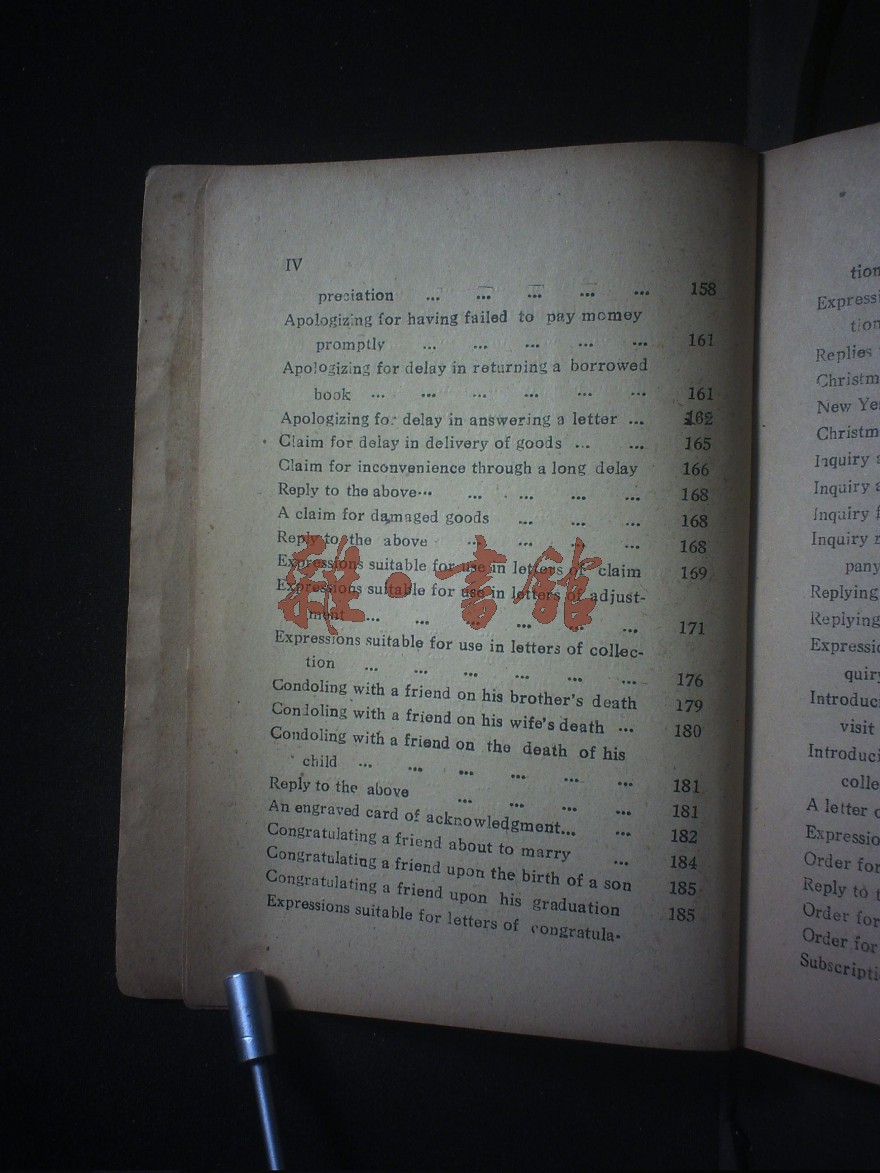 IV
preciation ... ... ... ... ... 158
Apologizing for having failed to pay momey
promptly ... ... ... ... ... 161
Apologizing for delay in returning a borrowed
book ... ... ... ... ... ... 161
Apologizing for delay in answering a letter ... 162
Claim for delay in delivery of goods ... ... 165
Claim for inconvenience through a long delay 166
Reply to the above... ... ... ... ... 168
A claim for damaged goods ... ... ... 168
Reply to the above ... ... ... ... 168
Expressions suitable for use in letters of claim 169
Expressions suitable for use in letters of adjust-
ment ... ... ... ... ... ... 171
Expressions suitable for use in letters of collec-
tion ... ... ... ... ... ... 176
Condoling with a friend on his brother's death 179
Condoling with a friend on his wife's death ... 180
Condoling with a friend on the death of his
child ... ... ... ... ... ... 181
Reply to the above ... ... ... ... 181
An engraved card of acknowledgment... ... 182
Congratulating a friend about to marry ... 184
Congratulating a friend upon the birth of a son 185
Congratulating a friend upon his graduation 185
Expressions suitable for letters of congratula-
雜·書館
tion
Expressi
tion
Replies
Christm
New Yea
Christm
Inquiry a
Inquiry a
Inquiry f
Inquiry r
pany
Replying
Replying
Expressio
quiry
Introduc
visit
Introduci
colle
A letter o
Expressio
Order for
Reply to t
Order for
Order for
Subscripti